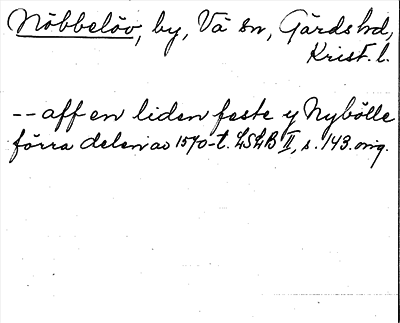 Nöbbelöv, by, Vä sn, Gärds hd,
Krist. l.
-- aff en liden feste y Nybölle
förra delen av 1570-t. LSLB II, s. 143. orig.